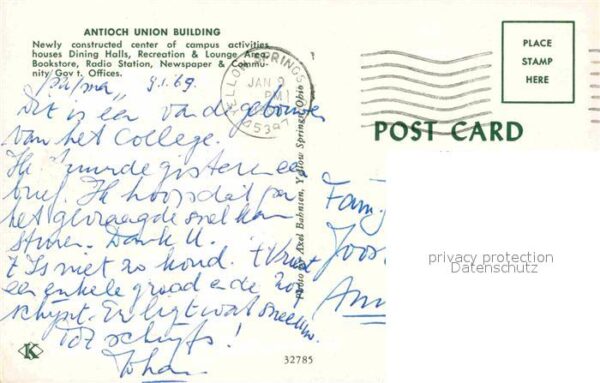 ANTIOCH UNION BUILDING
Newly constructed center of campus activities
houses Dining Halls, Recreation & Lounge Area,
Bookstore, Radio Station, Newspaper & Commu-
nity Gov't. Offices.
pa/ma, 9.1.69.
Dit is één van de gebouwen
van het College.
Ik stuurde gisteren een
brief. Ik hoop dat pa
het gevraagde snel kan
sturen. Dank U.
't Is niet zo koud. 't Vriest
een enkele graad en de zon
schijnt. Er ligt wat sneeuw.
Tot schrijfs!
Johan
YELLOW SPRINGS
JAN 9
PM
45387
Photo by Axel Bahnsen, Yellow Springs, Ohio
PLACE
STAMP
HERE
POST CARD
Fam.
Joos
privacy protection
Datenschutz
K
32785